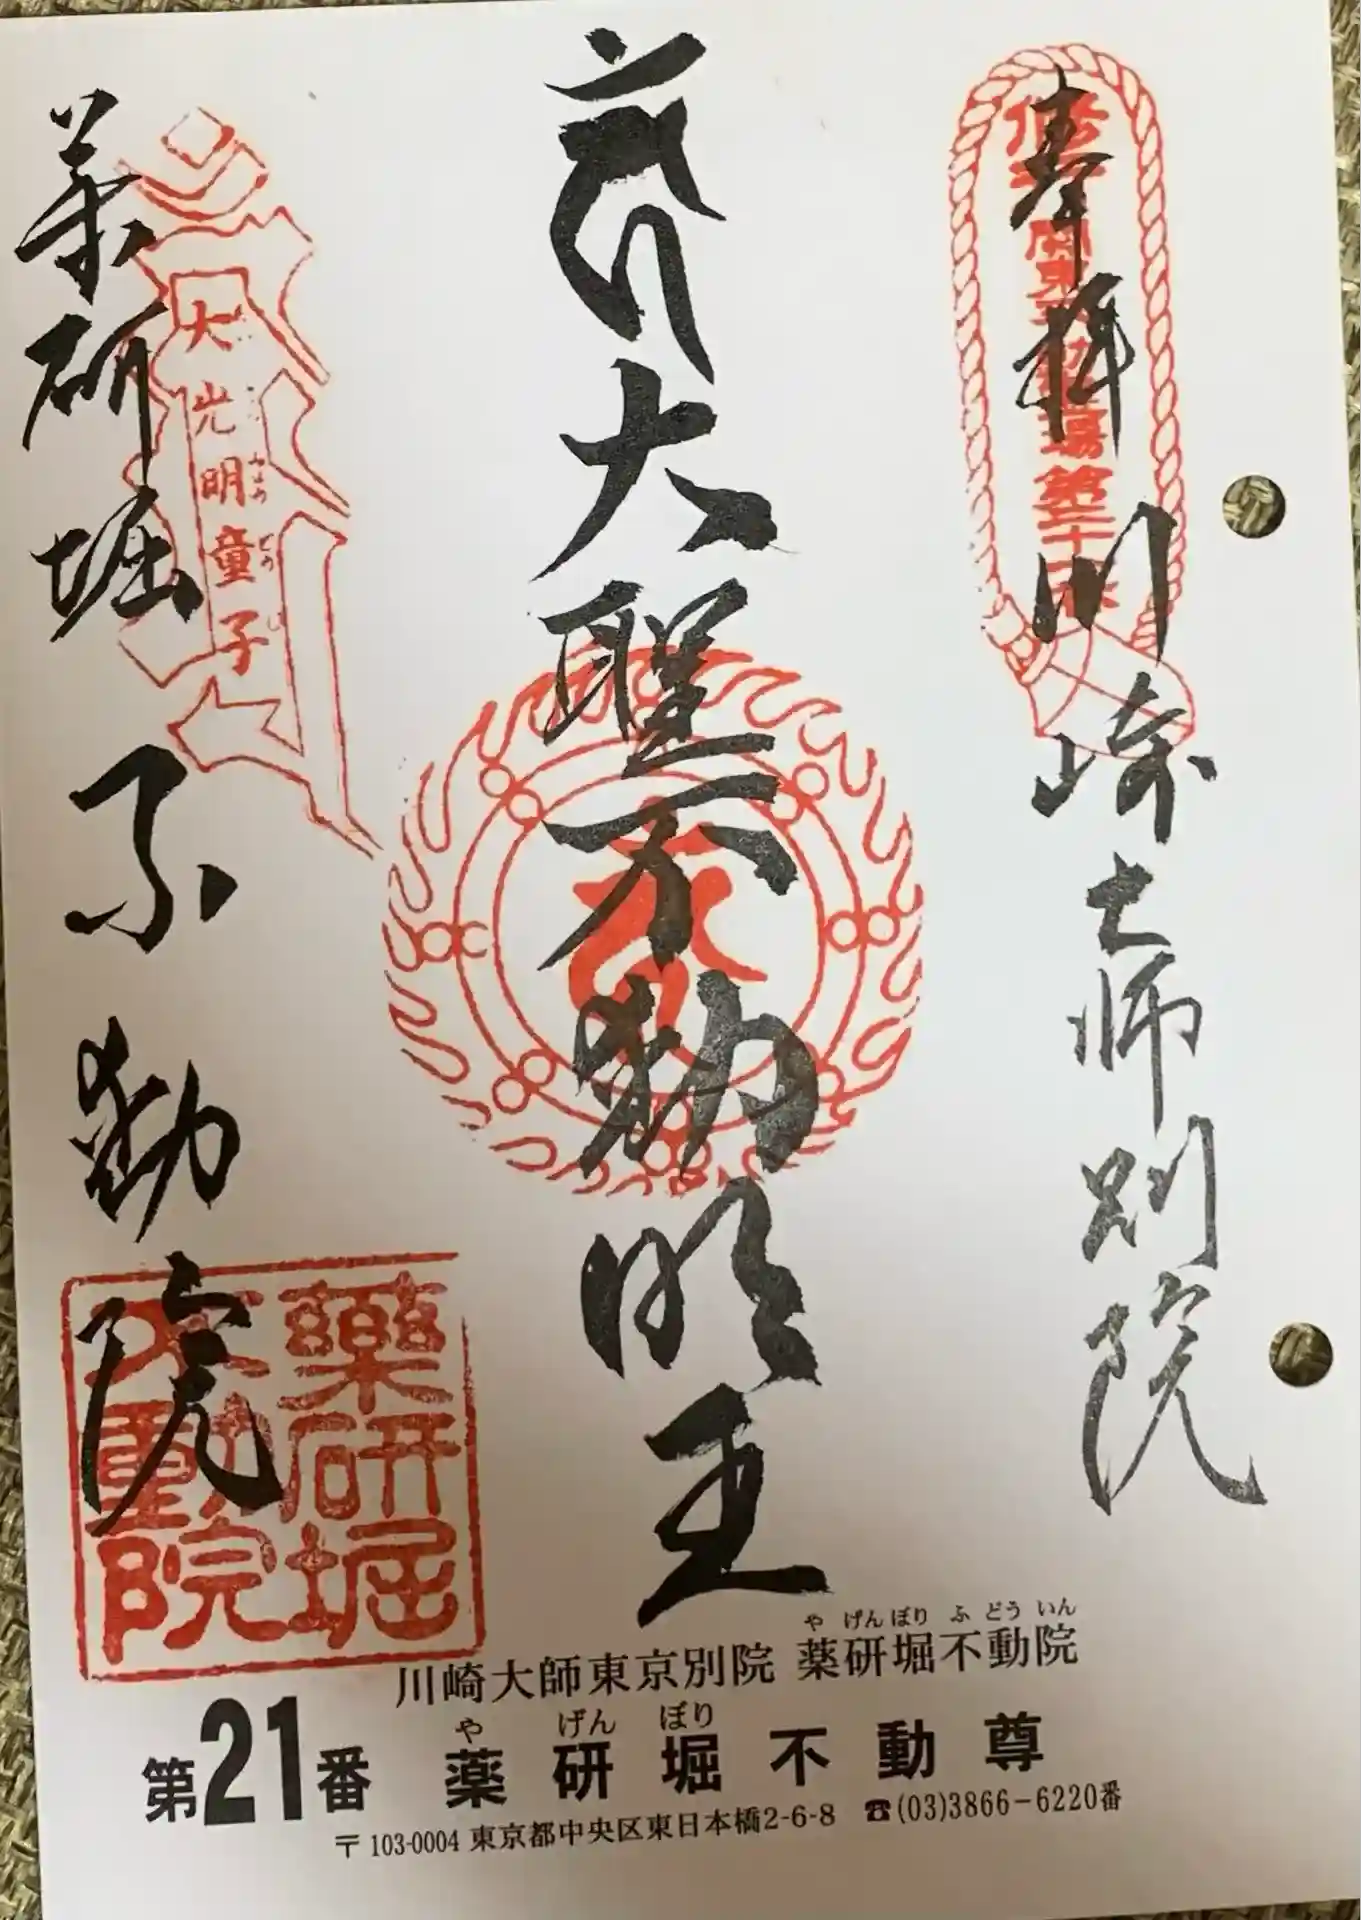 奉拝
川崎大師別院
大聖不動明王
薬研堀
不動院
関東
霊場第
大光明童子
薬研堀
不動院
や げんぼり ふ どう いん
川崎大師東京別院 薬研堀不動院
や げん ぼり
第21番 薬研堀不動尊
〒103-0004 東京都中央区東日本橋2-6-8 ☎(03)3866-6220番